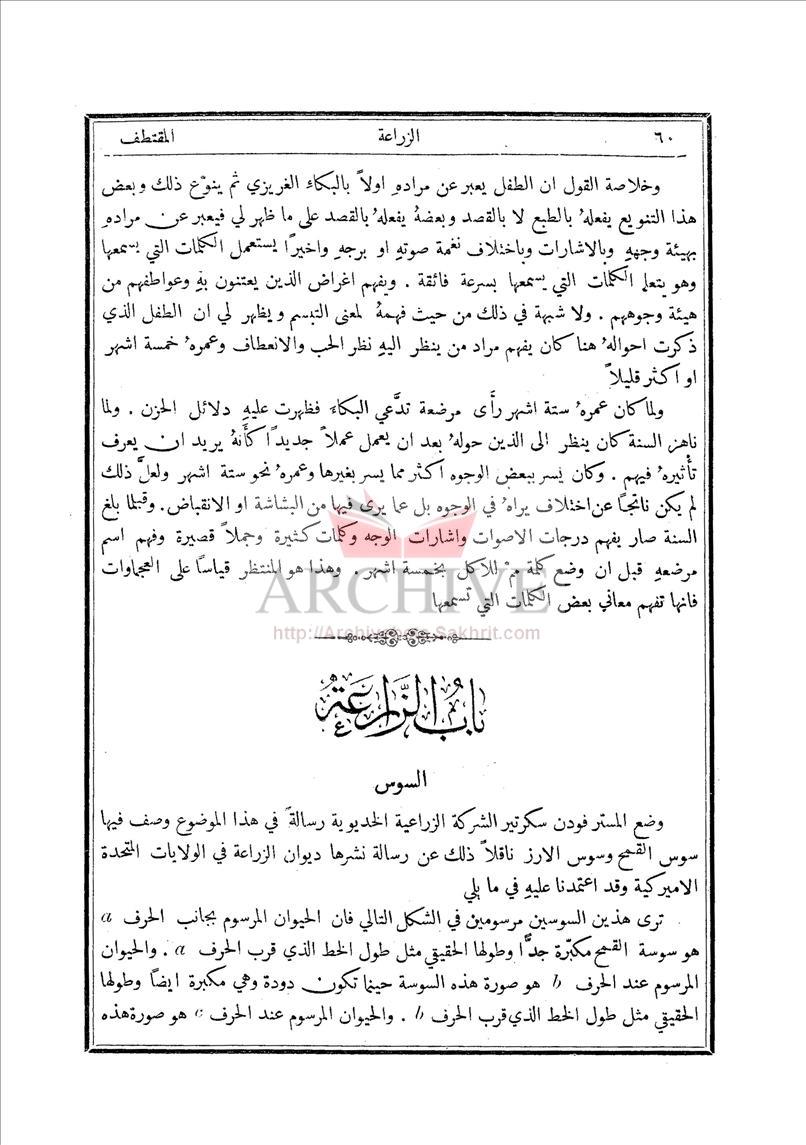 ٦٠ الزراعة المقتطف
وخلاصة القول ان الطفل يعبر عن مرادهِ اولاً بالبكاء الغريزي ثم ينوّع ذلك وبعض
هذا التنويع يفعلهُ بالطبع لا بالقصد وبعضهُ يفعلهُ بالقصد على ما ظهر لي فيعبر عن مرادهِ
بهيئة وجههِ وبالاشارات وباختلاف نغمة صوتهِ او برجهِ واخيرًا يستعمل الكلمات التي يسمعها
وهو يتعلم الكلمات التي يسمعها بسرعة فائقة . ويفهم اغراض الذين يعتنون بهِ وعواطفهم من
هيئة وجوههم . ولا شبهة في ذلك من حيث فهمهُ لمعنى التبسم ويظهر لي ان الطفل الذي
ذكرت احوالهُ هنا كان يفهم مراد من ينظر اليهِ نظر الحب والانعطاف وعمرهُ خمسة اشهر
او اكثر قليلاً
ولما كان عمرهُ ستة اشهر رأى مرضعة تدّعي البكاءَ فظهرت عليهِ دلائل الحزن . ولما
ناهز السنة كان ينظر الى الذين حولهُ بعد ان يعمل عملاً جديدًا كأنهُ يريد ان يعرف
تأثيرهُ فيهم . وكان يسر ببعض الوجوه اكثر مما يسر بغيرها وعمرهُ نحو ستة اشهر ولعلّ ذلك
لم يكن ناتجًا عن اختلاف يراهُ في الوجوه بل عما يرى فيها من البشاشة او الانقباض. وقبلما بلغ
السنة صار يفهم درجات الاصوات واشارات الوجه وكلمات كثيرة وجملاً قصيرة وفهم اسم
مرضعهِ قبل ان وضع كلمة مم للأكل بخمسة اشهر . وهذا هو المنتظر قياسًا على العجماوات
فانها تفهم معاني بعض الكلمات التي تسمعها
ARCHIVE
http://Archivebeta.Sakhrit.com
باب الزراعة
السوس
وضع المستر فودن سكرتير الشركة الزراعية الخديوية رسالةً في هذا الموضوع وصف فيها
سوس القمح وسوس الارز ناقلاً ذلك عن رسالة نشرها ديوان الزراعة في الولايات المتحدة
الاميركية وقد اعتمدنا عليهِ في ما يلي
ترى هذين السوسين مرسومين في الشكل التالي فان الحيوان المرسوم بجانب الحرف a
هو سوسة القمح مكبّرة جدًّا وطولها الحقيقي مثل طول الخط الذي قرب الحرف a . والحيوان
المرسوم عند الحرف b هو صورة هذه السوسة حينما تكون دودة وهي مكبرة ايضًا وطولها
الحقيقي مثل طول الخط الذي قرب الحرف b . والحيوان المرسوم عند الحرف c هو صورة هذه